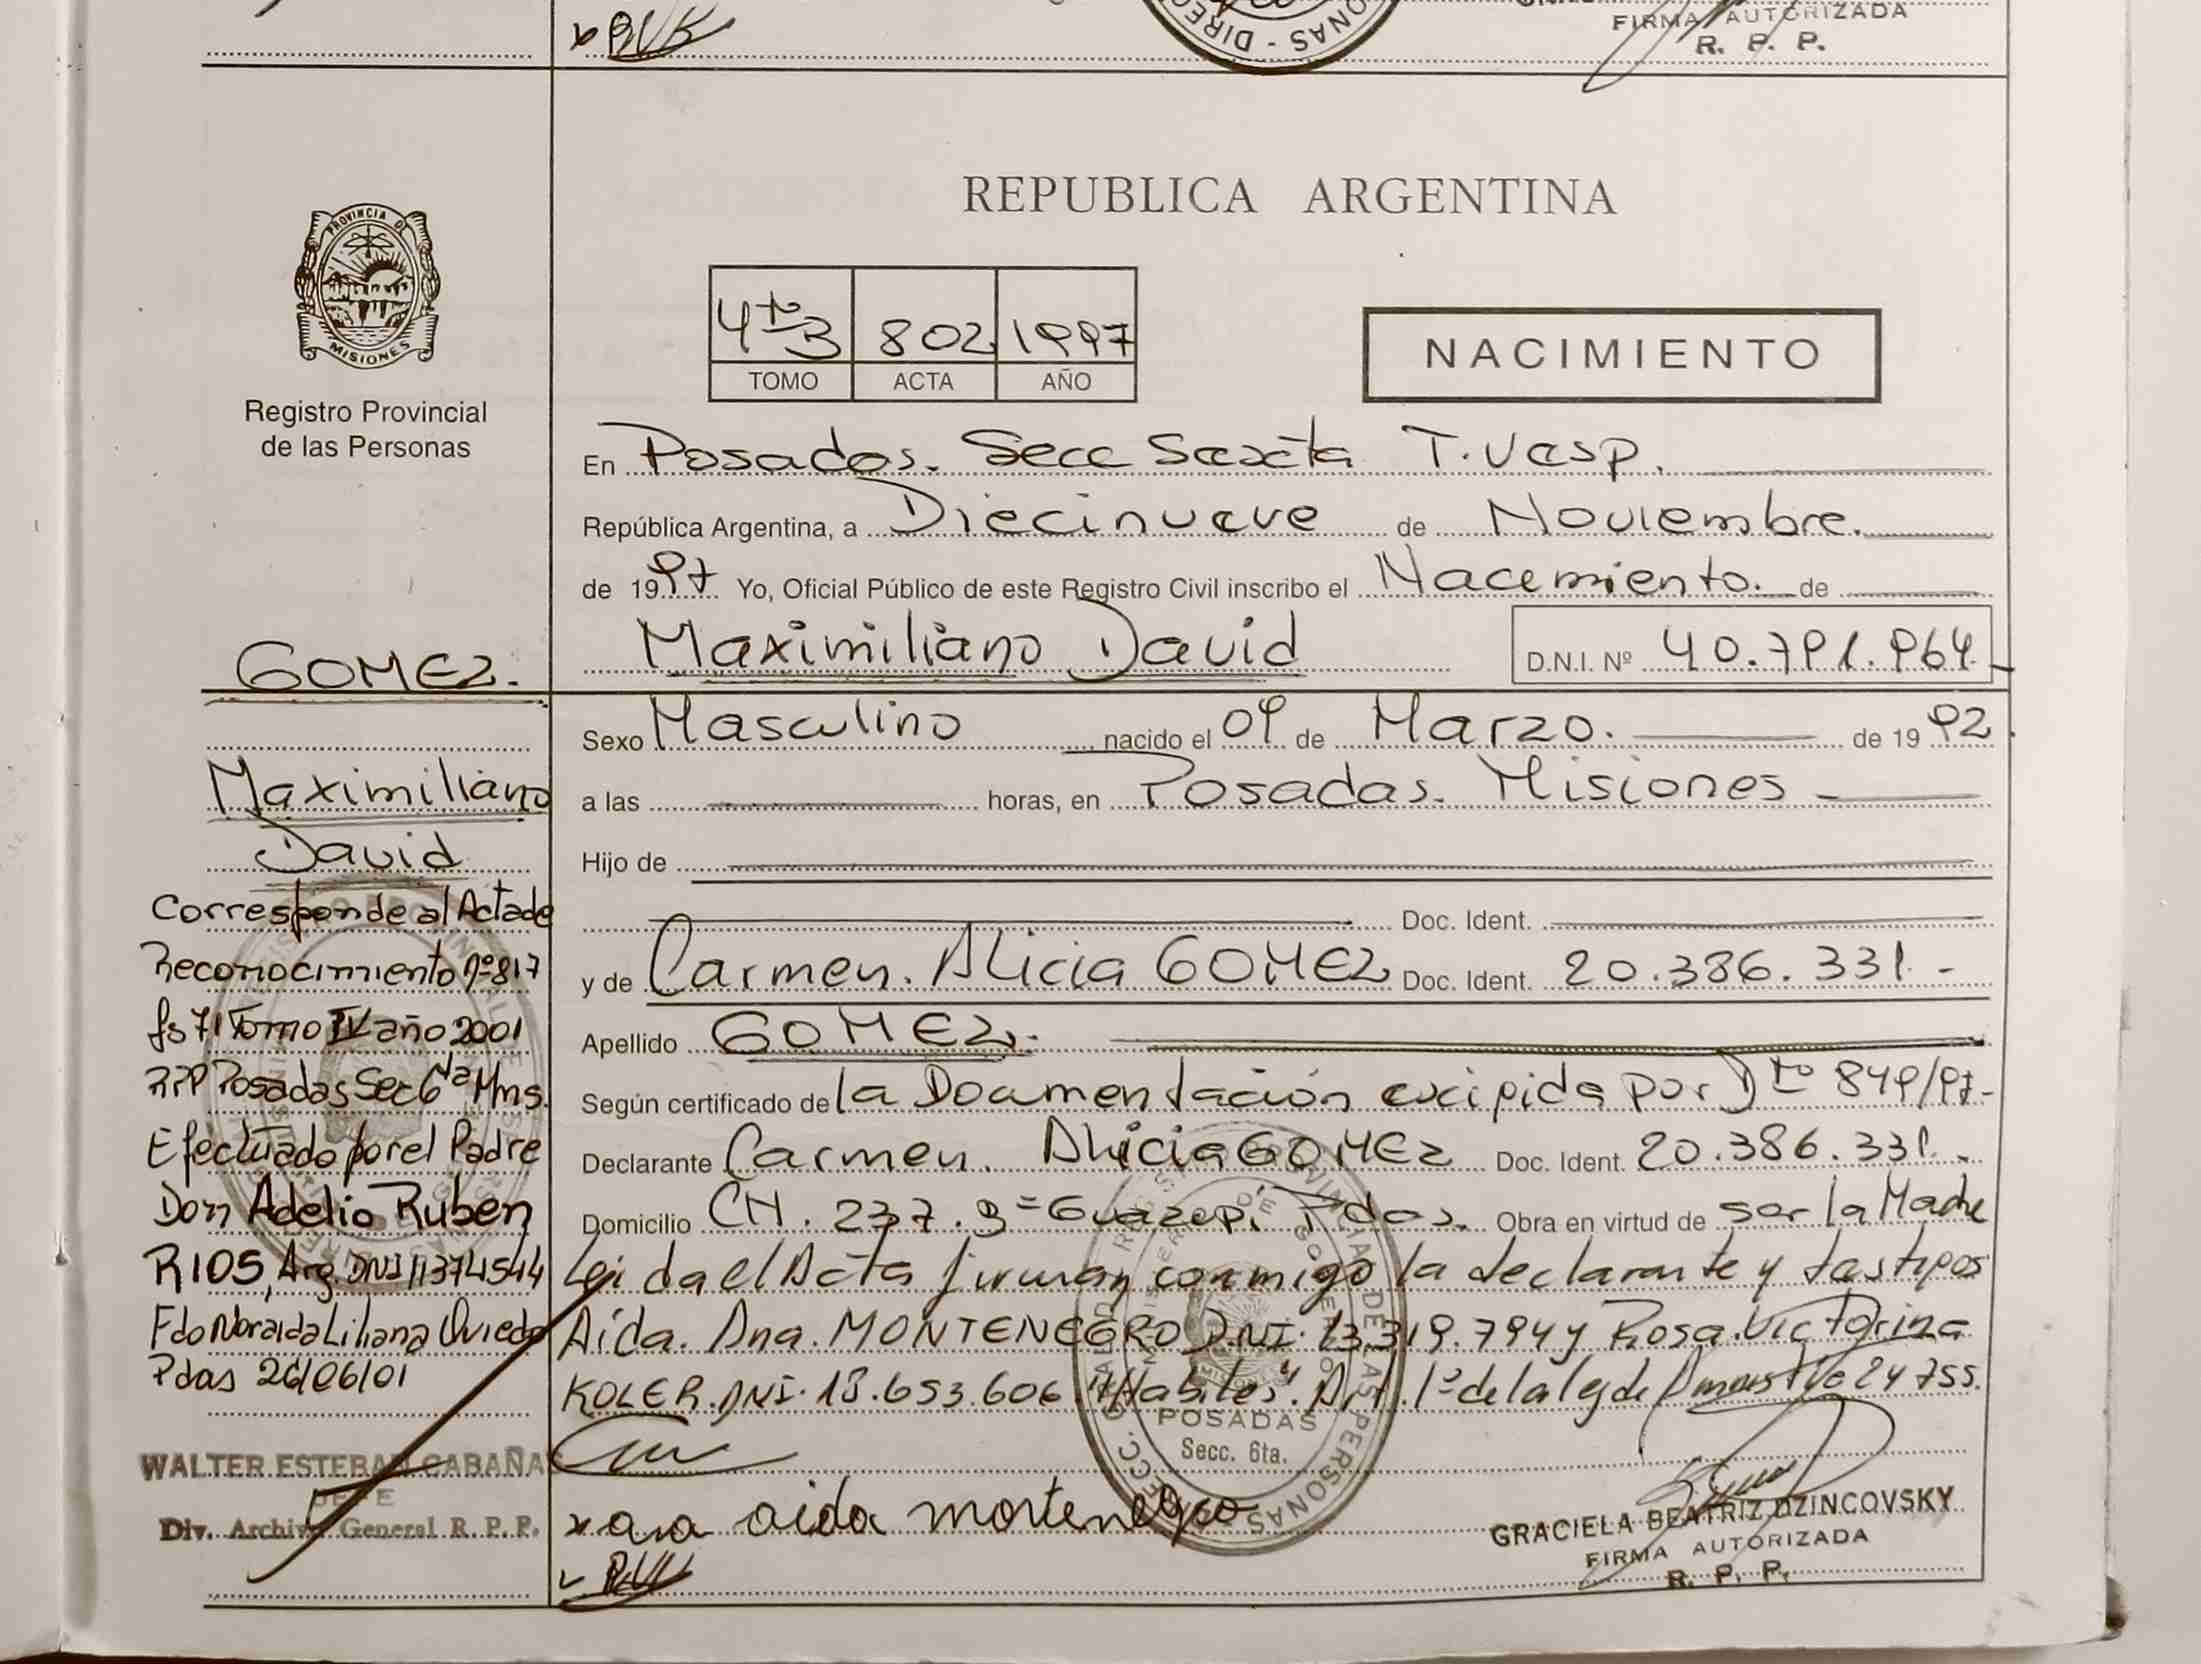 FIRMA AUTORIZADA
R. P. P.
PROVINCIA DE
MISIONES
Registro Provincial
de las Personas
REPUBLICA ARGENTINA
4to 3 802 1997
TOMO ACTA AÑO
NACIMIENTO
En Posadas. Secc Sexta T. Vesp.
República Argentina, a Diecinueve de Noviembre.
de 1997 Yo, Oficial Público de este Registro Civil inscribo el Nacemiento. de
Maximiliano David D.N.I. Nº 40.791.964
Sexo Masculino nacido el 09 de Marzo. de 1992
a las horas, en Posadas. Misiones
Hijo de
Doc. Ident.
y de Carmen. Alicia GOMEZ Doc. Ident. 20.386.331.-
Apellido GOMEZ.
Según certificado de la Documentación exipida por Dto 849/97-
Declarante Carmen. Alicia GOMEZ Doc. Ident. 20.386.331.-
Domicilio CH. 237. Guazupi Pdas. Obra en virtud de ser la Madre
Leida el Acta firman conmigo la declarante y tastigos
Aida. Ana. MONTENEGRO DNI. 13.319.794 y Rosa. Victorina
KOLER. DNI. 13.653.606. "Habiles". Art. 1º de la ley de Amnistia 24755.
x ana aida montenegro
GRACIELA BEATRIZ DZINCOVSKY
FIRMA AUTORIZADA
R. P. P.
POSADAS
Secc. 6ta.
GOMEZ.
Maximiliano
David
Corresponde al Acta de
Reconocimiento nº 817
fs 71 Tomo IV año 2001
RPP Posadas Sec 6ta Mns.
Efectuado por el Padre
Don Adelio Ruben
RIOS, Arg. DNI 11374544
Fdo Noraida Liliana Oviedo
Pdas 26/06/01
WALTER ESTEBAN CABAÑA
JEFE
Div. Archivo General R. P. P.